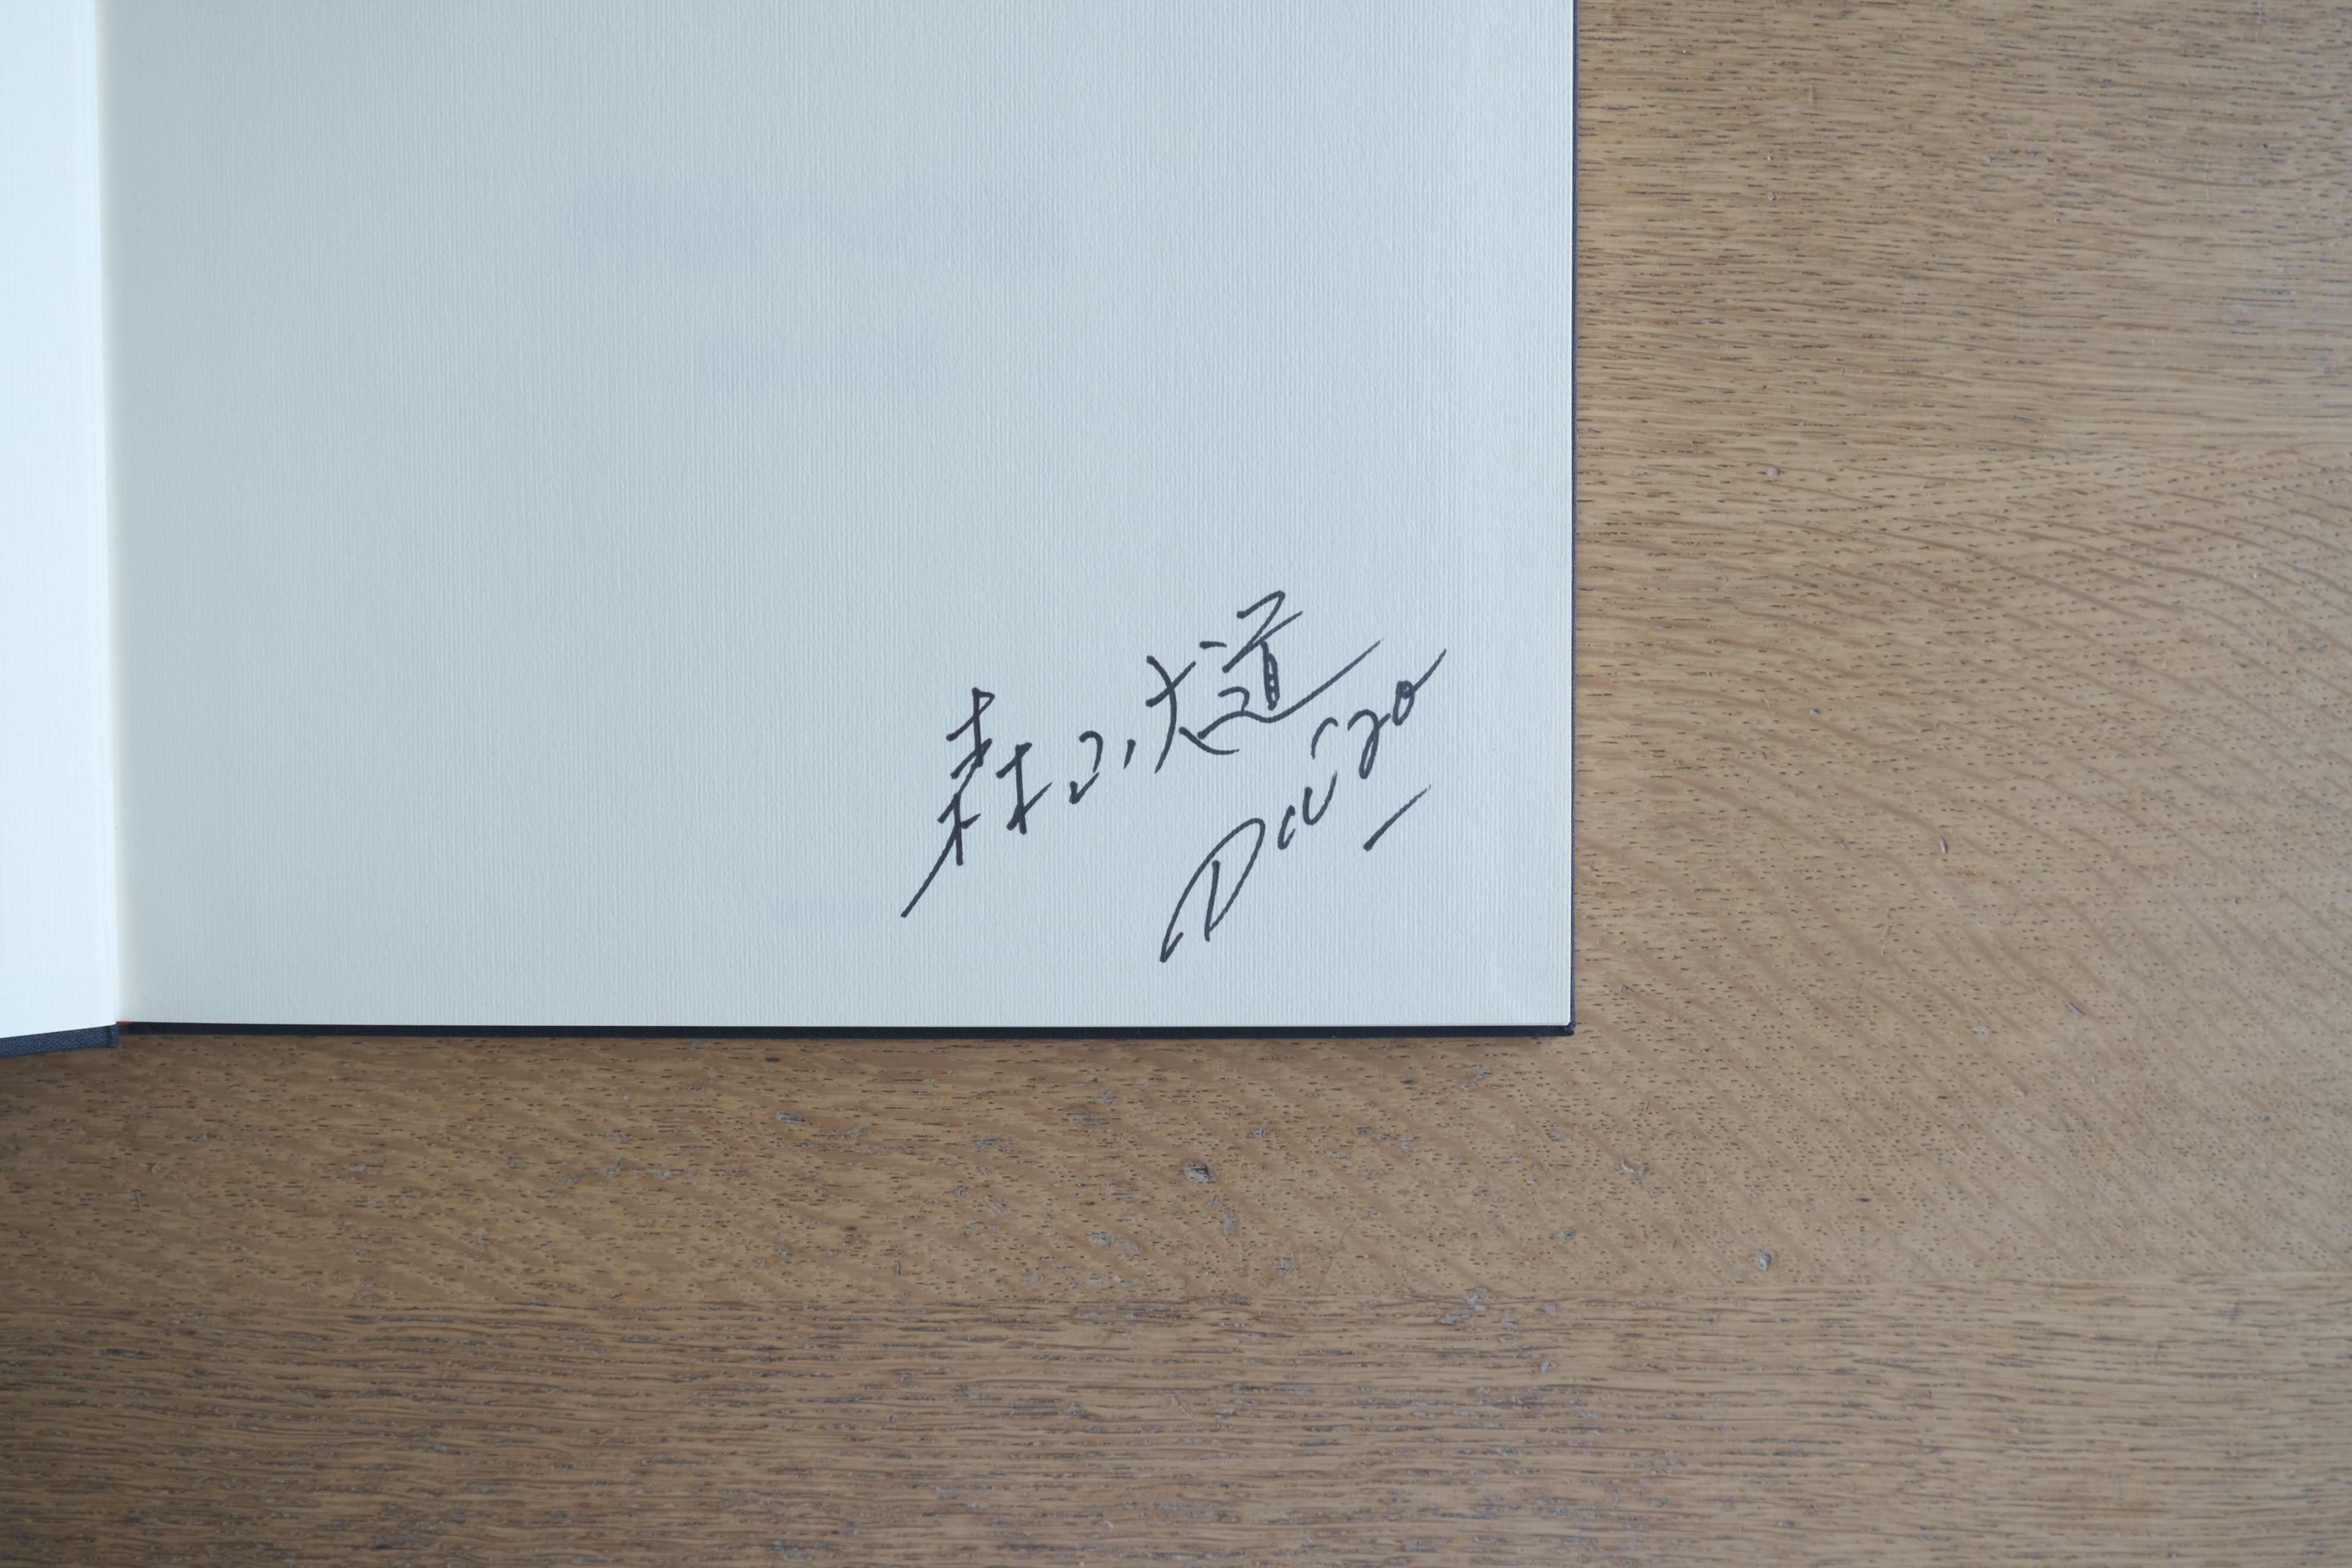 森山大道
Daido